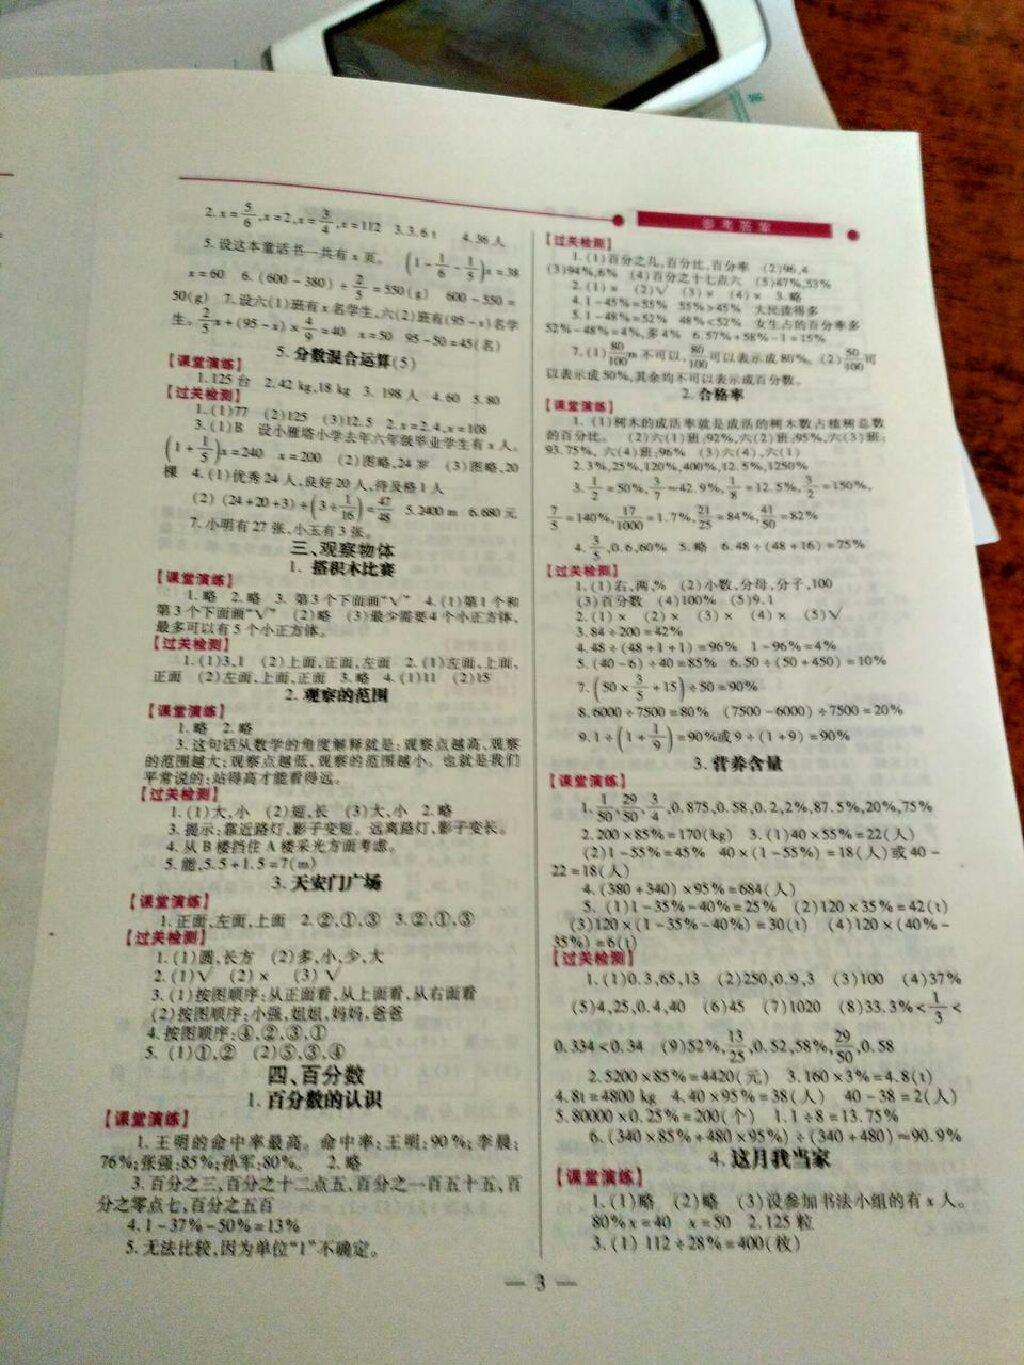 参考答案
2. x=5/6, x=2, x=3/4, x=112 3. 3.6 t 4. 36 人
5. 设这本童话书一共有 x 页。 (1-1/6-1/5)x=38
x=60 6. (600-380)÷2/5=550(g) 600-550=
50(g) 7. 设六(1)班有 x 名学生,六(2)班有(95-x)名学
生。2/5x+(95-x)×4/9=40 x=50 95-50=45(名)
5. 分数混合运算(5)
【课堂演练】
1. 125 台 2. 42 kg,18 kg 3. 198 人 4. 60 5. 80
【过关检测】
1. (1)77 (2)125 (3)12.5 2. x=2.4, x=108
3. (1)B 设小雁塔小学去年六年级毕业学生有 x 人。
(1+1/5)x=240 x=200 (2)图略,24 岁 (3)图略,20
棵 4. (1)优秀 24 人,良好 20 人,待及格 1 人
(2) (24+20+3)÷(3÷1/16)=47/48 5. 2400 m 6. 680 元
7. 小明有 27 张,小玉有 3 张。
三、观察物体
1. 搭积木比赛
【课堂演练】
1. 略 2. 略 3. 第 3 个下面画“√” 4. (1)第 1 个和
第 3 个下面画“√” (2)略 (3)最少需要 4 个小正方体,
最多可以有 5 个小正方体。
【过关检测】
1. (1)3,1 (2)上面,正面,左面 2. (1)左面,上面,
正面 (2)左面,上面,正面 3. 略 4. (1)11 (2)15
2. 观察的范围
【课堂演练】
1. 略 2. 略
3. 这句话从数学的角度解释就是:观察点越高,观察
的范围越大;观察点越低,观察的范围越小。也就是我们
平常说的:站得高才能看得远。
【过关检测】
1. (1)大,小 (2)短,长 (3)大,小 2. 略
3. 提示:靠近路灯,影子变短。远离路灯,影子变长。
4. 从 B 楼挡住 A 楼采光方面考虑。
5. 能,5.5+1.5=7(m)
3. 天安门广场
【课堂演练】
1. 正面,左面,上面 2. ②,①,③ 3. ②,①,③
【过关检测】
1. (1)圆,长方 (2)多,小,少,大
2. (1)√ (2)× (3)√
3. (1)按图顺序:从正面看,从上面看,从右面看
(2)按图顺序:小强,姐姐,妈妈,爸爸
4. 按图顺序:④,②,③,①
5. (1)①,② (2)⑤,③,④
四、百分数
1. 百分数的认识
【课堂演练】
1. 王明的命中率最高。命中率:王明:90%;李晨:
76%;张强:85%;孙军:80%。 2. 略
3. 百分之三,百分之十二点五,百分之一百五十五,百
分之零点七,百分之五百
4. 1-37%-50%=13%
5. 无法比较,因为单位“1”不确定。
【过关检测】
1. (1)百分之几,百分比,百分率 (2)96,4
(3)94%,6% (4)百分之十七点六 (5)47%,53%
2. (1)× (2)√ (3)× (4)× 3. 略
4. 1-45%=55% 55%>45% 大民读得多
5. 1-48%=52% 48%<52% 女生占的百分率多
52%-48%=4%,多 4% 6. 57%+58%-1=15%
7. (1)80/100m 不可以,80/100可以表示成 80%。(2)50/100可
以表示成 50%,其余均不可以表示成百分数。
2. 合格率
【课堂演练】
1. (1)树木的成活率就是成活的树木数占植树总数
的百分比。 (2)六(1)班:92%,六(2)班:95%,六(3)班:
93.75%, 六(4)班:96% (3)六(4),六(1)
2. 3%,25%,120%,400%,12.5%,1250%
3. 1/2=50%,3/7≈42.9%,1/8=12.5%,3/2=150%,
7/5=140%,17/1000=1.7%,21/25=84%,41/50=82%
4. 3/5,0.6,60% 5. 略 6. 48÷(48+16)=75%
【过关检测】
1. (1)右,两,% (2)小数,分母,分子,100
(3)百分数 (4)100% (5)9.1
2. (1)× (2)× (3)× (4)× (5)√
3. 84÷200=42%
4. 48÷(48+1+1)=96% 1-96%=4%
5. (40-6)÷40=85% 6. 50÷(50+450)=10%
7. (50×3/5+15)÷50=90%
8. 6000÷7500=80% (7500-6000)÷7500=20%
9. 1÷(1+1/9)=90%或 9÷(1+9)=90%
3. 营养含量
【课堂演练】
1. 1/50,29/50,3/4,0.875,0.58,0.2,2%,87.5%,20%,75%
2. 200×85%=170(kg) 3. (1)40×55%=22(人)
(2)1-55%=45% 40×(1-55%)=18(人)或 40-
22=18(人)
4. (380+340)×95%=684(人)
5. (1)1-35%-40%=25% (2)120×35%=42(t)
(3)120×(1-35%-40%)=30(t) (4)120×(40%-
35%)=6(t)
【过关检测】
1. (1)0.3,65,13 (2)250,0.9,3 (3)100 (4)37%
(5)4,25,0.4,40 (6)45 (7)1020 (8)33.3%<1/3<
0.334<0.34 (9)52%,13/25,0.52,58%,29/50,0.58
2. 5200×85%=4420(元) 3. 160×3%=4.8(t)
4.8t=4800 kg 4. 40×95%=38(人) 40-38=2(人)
5. 80000×0.25%=200(个) 1.1÷8=13.75%
6. (340×85%+480×95%)÷(340+480)≈90.9%
4. 这月我当家
【课堂演练】
1. (1)略 (2)略 (3)设参加书法小组的有 x 人。
80%x=40 x=50 2. 125 粒
3. (1) 112÷28%=400(枚)
— 3 —